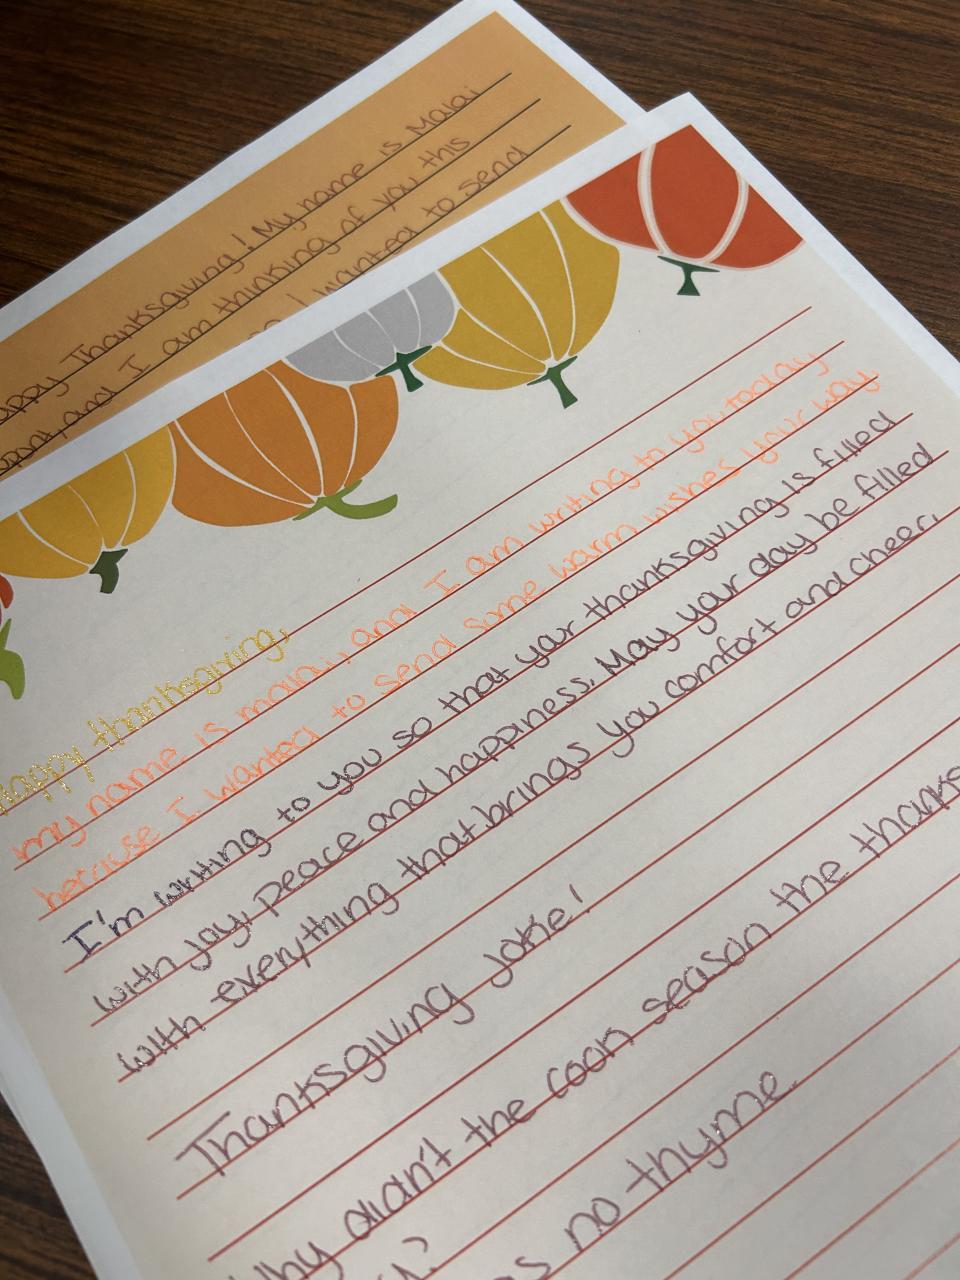 Happy Thanksgiving! My name is Malai
and I am thinking of you this
I wanted to send
happy thanksgiving,
my name is malay, and I am writing to you today
because I wanted to send some warm wishes your way.
I'm writing to you so that your thanksgiving is filled
with joy, peace and happiness. May your day be filled
with everything that brings you comfort and cheer.
Thanksgiving joke!
Why didn't the cook season the thanks
no thyme.